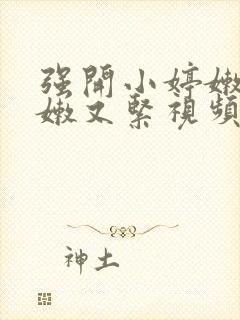 强開小婷嫩
嫩又緊視頻
神土